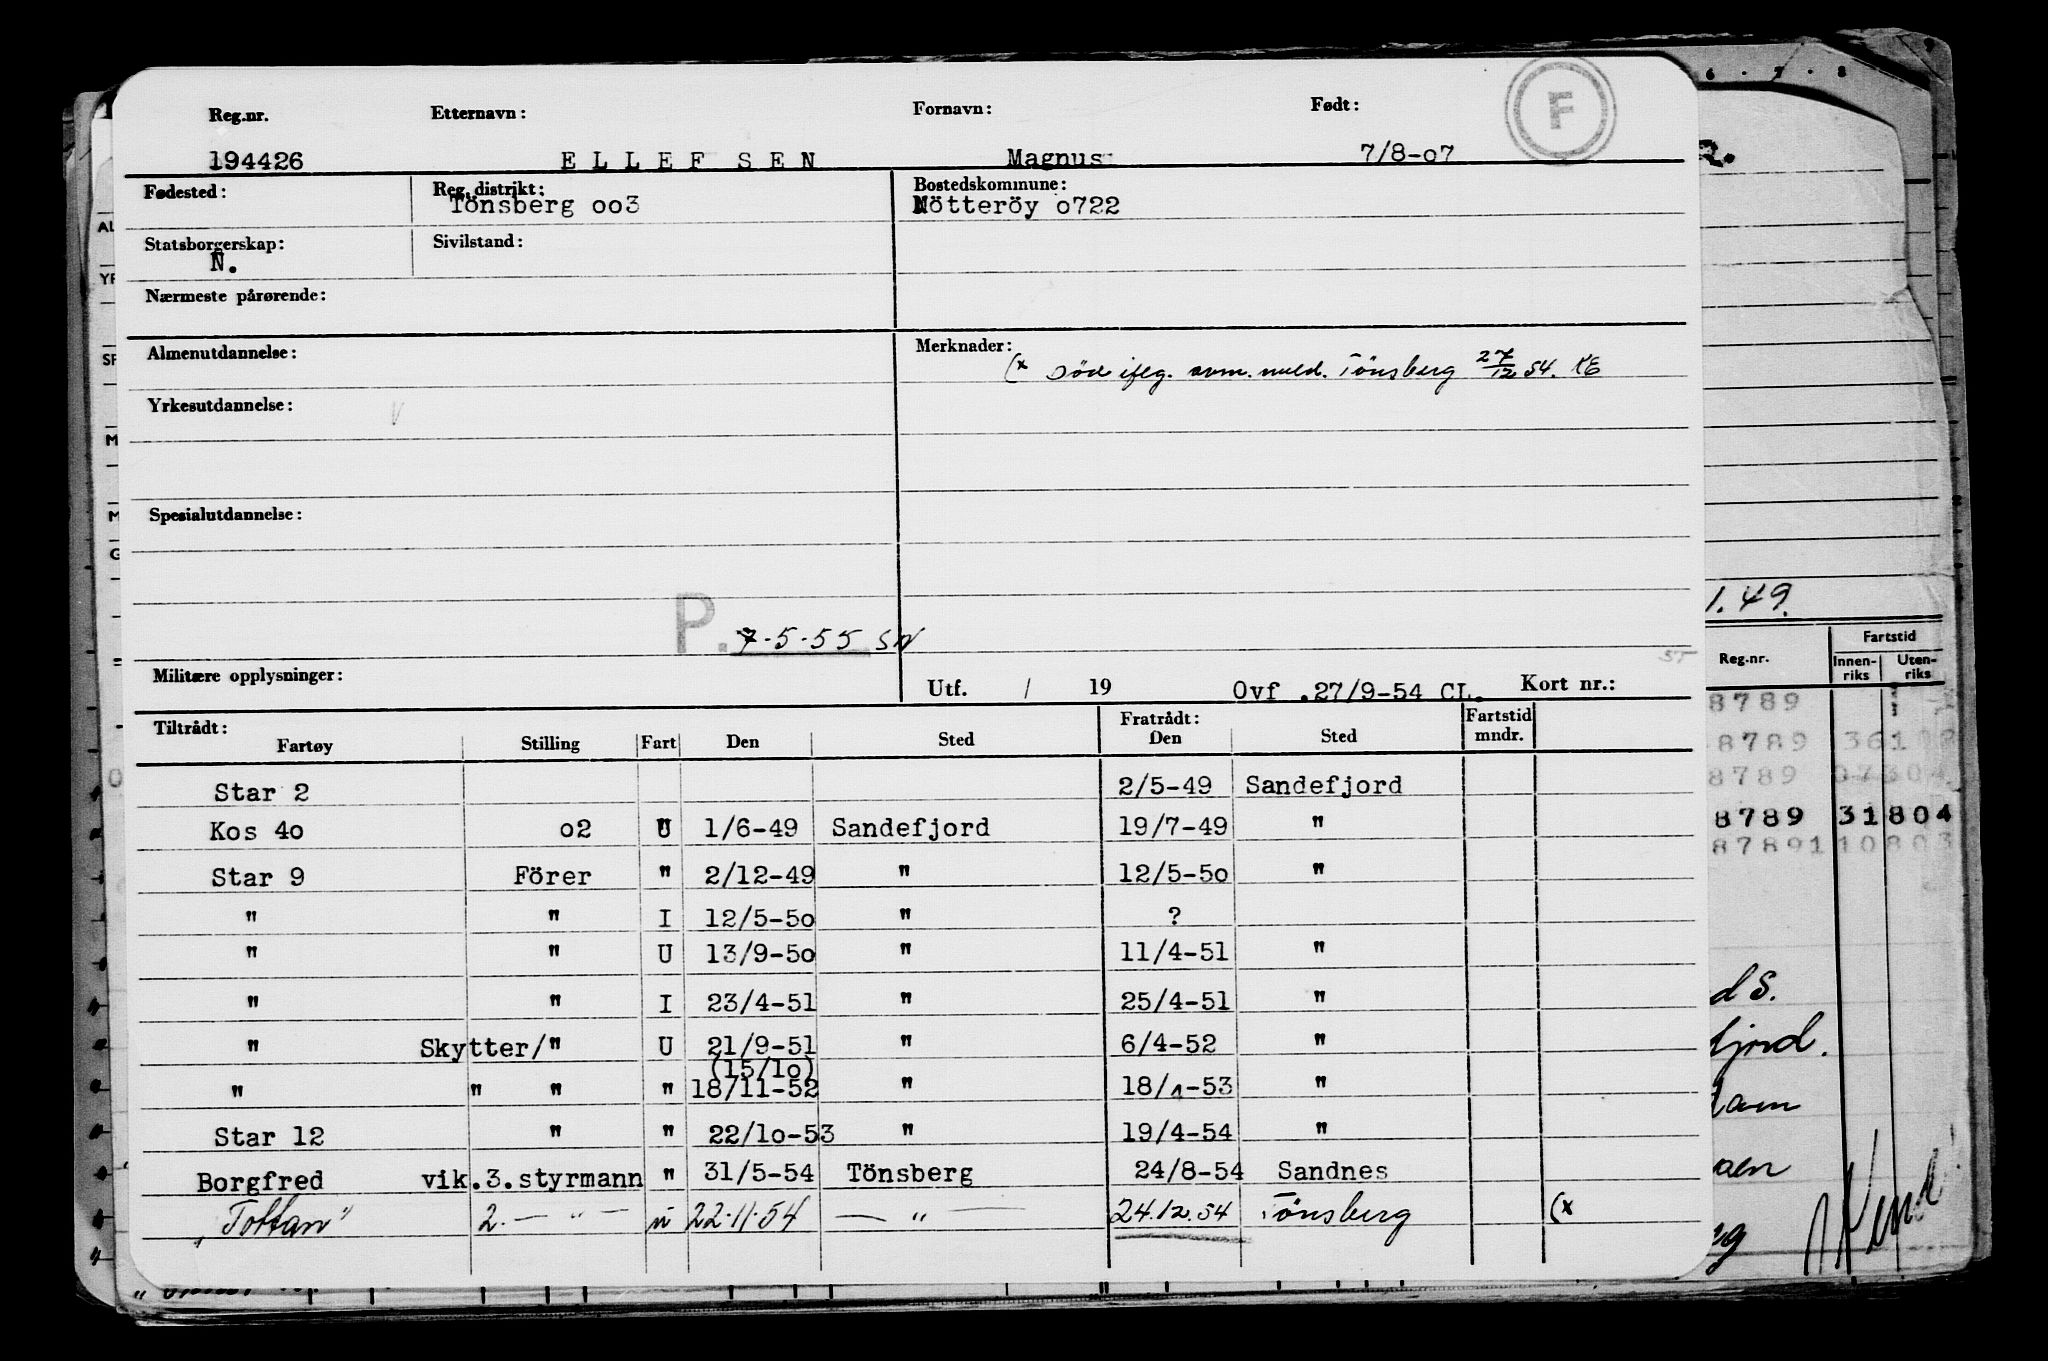 Reg.nr. Etternavn: Fornavn: Født: F
194426 ELLEFSEN Magnus 7/8-o7
Fødested: Reg.distrikt: Bostedskommune:
Tönsberg oo3 Nötteröy o722
Statsborgerskap: Sivilstand:
N.
Nærmeste pårørende:
Almenutdannelse: Merknader:
(x Död iflg. avm. meld. Tönsberg 27/12 54. KE
Yrkesutdannelse:
Spesialutdannelse:
P. 7.5.55 SN
Militære opplysninger: Utf. / 19 Ovf .27/9-54 CL. Kort nr.:
Tiltrådt: Fratrådt: Fartstid
Fartøy Stilling Fart Den Sted Den Sted mndr.
Star 2 2/5-49 Sandefjord
Kos 4o o2 U 1/6-49 Sandefjord 19/7-49 "
Star 9 Förer " 2/12-49 " 12/5-5o "
" " I 12/5-5o " ?
" " U 13/9-5o " 11/4-51 "
" " I 23/4-51 " 25/4-51 "
" Skytter/" U 21/9-51 " 6/4-52 "
(15/1o)
" " " " 18/11-52 " 18/1-53 "
Star 12 " " 22/1o-53 " 19/4-54 "
Borgfred vik.3.styrmann " 31/5-54 Tönsberg 24/8-54 Sandnes
"Tottan" 2. — " — u 22.11.54 — " — 24.12.54 Tönsberg (x
6 . 7 . 8
R.
1.49.
Fartstid
Reg.nr. Innen- Uten-
riks riks
8789
8789
8789
8789 31804
87891 10803
d S.
fjord.